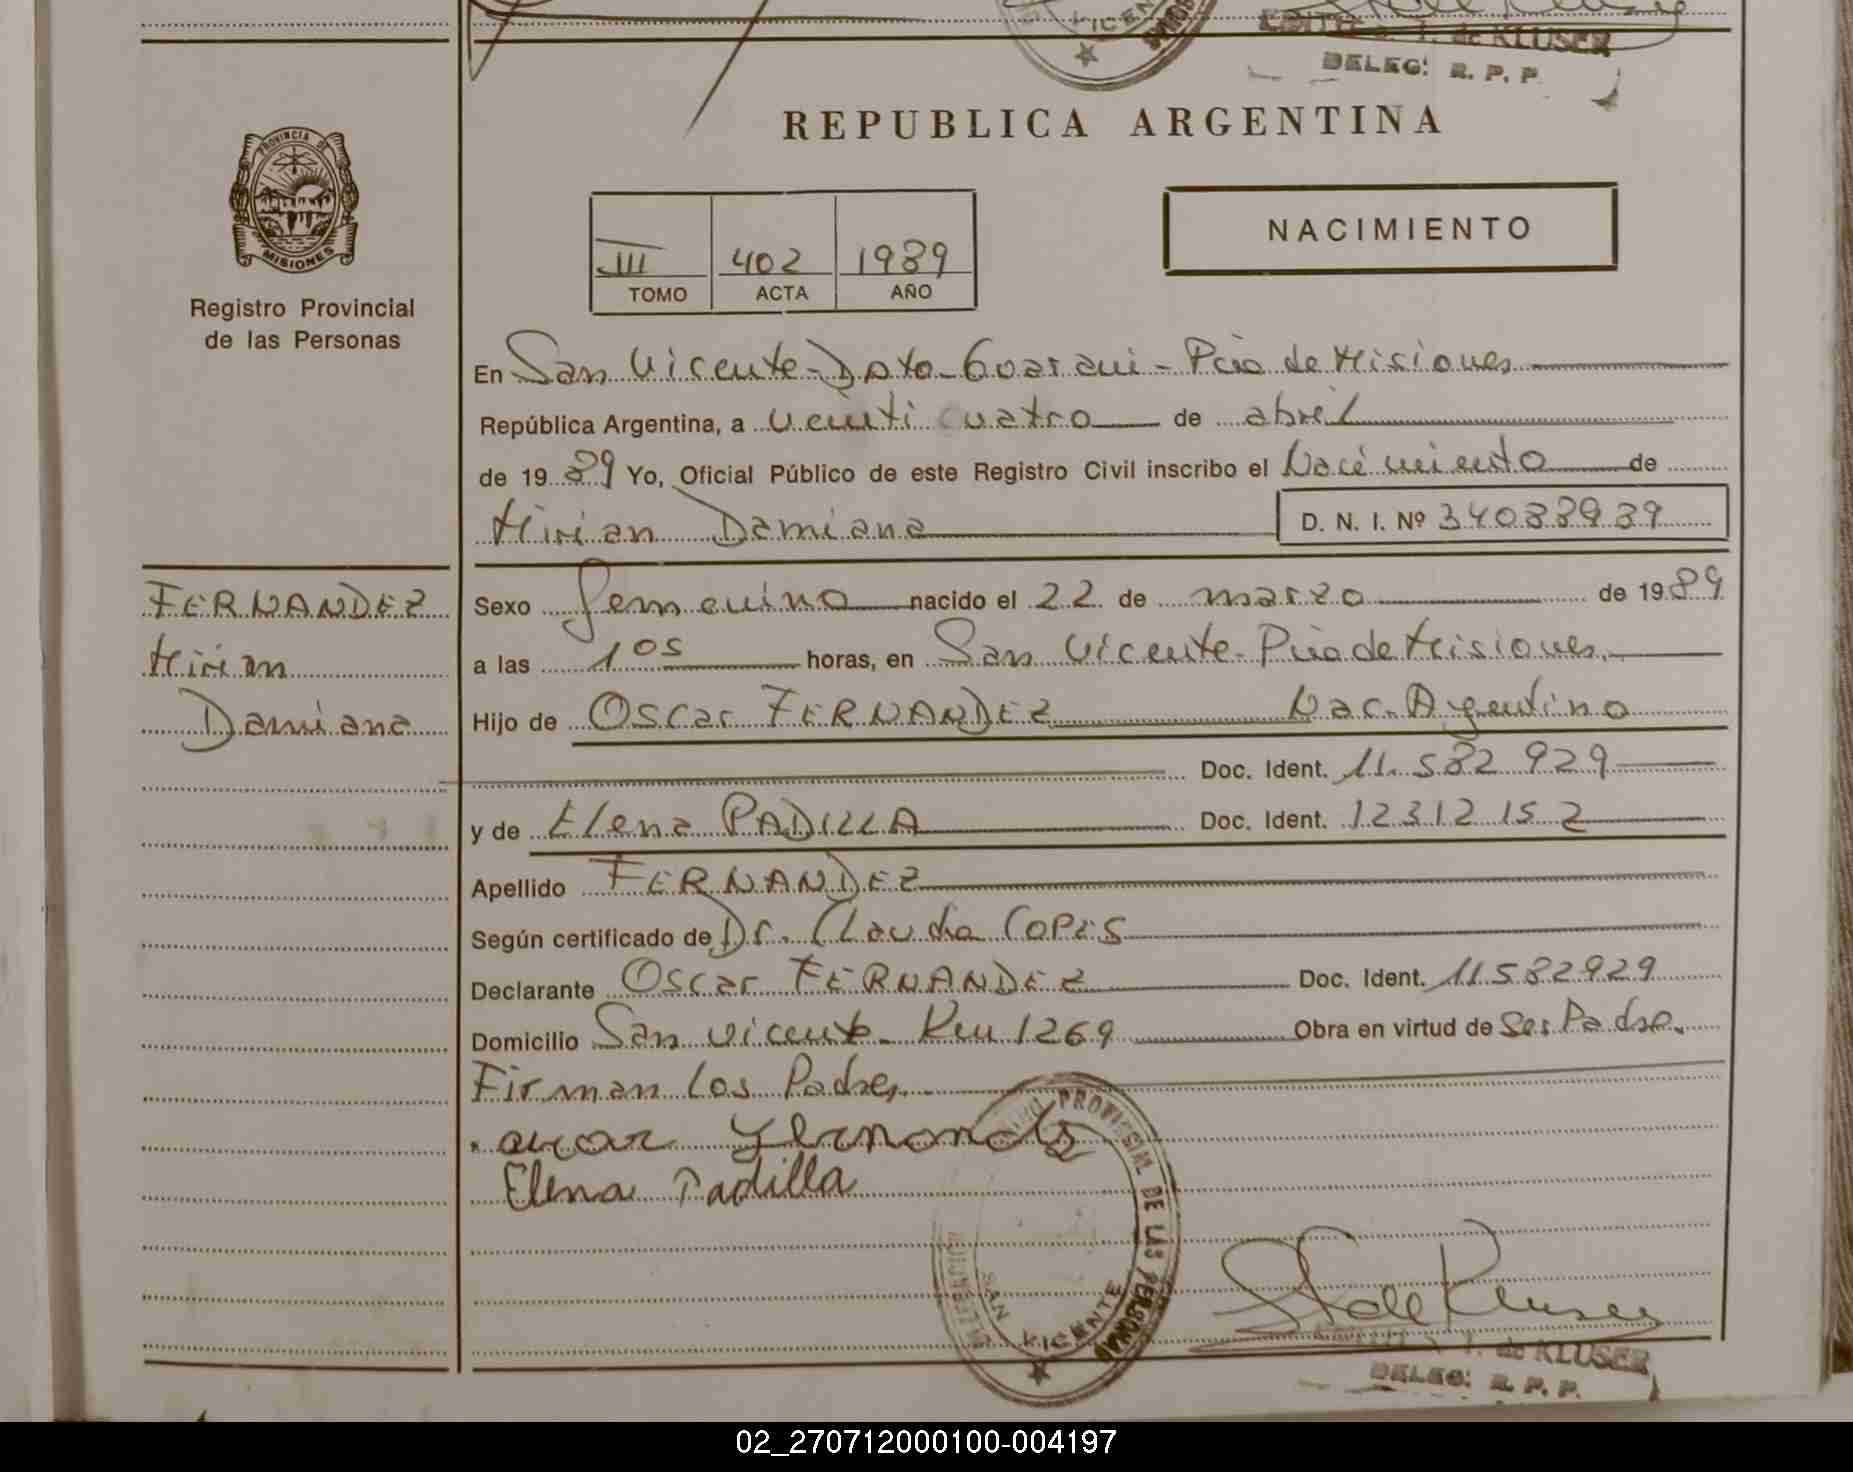 de KLUSER
DELEG: R. P. P.
REPUBLICA ARGENTINA
PROVINCIA DE
MISIONES
NACIMIENTO
III 402 1989
TOMO ACTA AÑO
Registro Provincial
de las Personas
En San Vicente-Dpto-Guarani-Pcia de Misiones
República Argentina, a veinti cuatro de abril
de 1989 Yo, Oficial Público de este Registro Civil inscribo el Nacimiento de
Mirian Damiana D. N. I. Nº 34038939
FERNANDEZ
Mirian
Damiana
Sexo femenino nacido el 22 de marzo de 1989
a las 1 05 horas, en San Vicente-Pcia de Misiones.
Hijo de Oscar FERNANDEZ Nac. Argentino
Doc. Ident. 11.582 929
y de Elena PADILLA Doc. Ident. 12312152
Apellido FERNANDEZ
Según certificado de Dr. Claudia COPES
Declarante Oscar FERNANDEZ Doc. Ident. 11582929
Domicilio San Vicente-Km 1269 Obra en virtud de Ser Padre.
Firman Los Padres
oscar fernandz
Elena Padilla
PROVINCIAL DE LAS PERSONAS
SAN VICENTE
de Kluser
de KLUSER
DELEG: R. P. P.
02_270712000100-004197